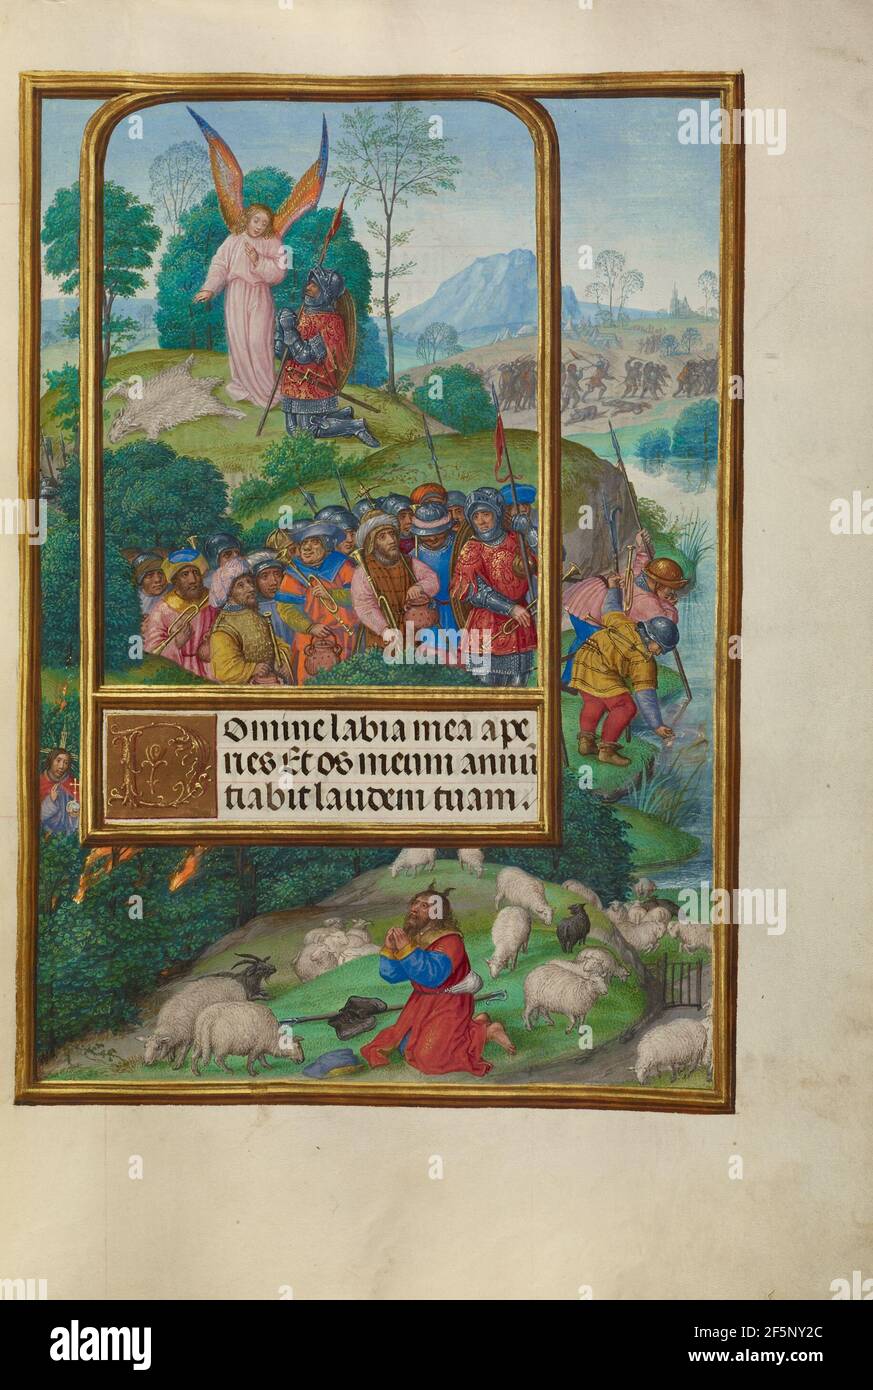 Domine labia mea ape
ries Et os meum annũ
tiabit laudem tuam.
alamy
alamy
Image ID: 2F5NY2C
www.alamy.com